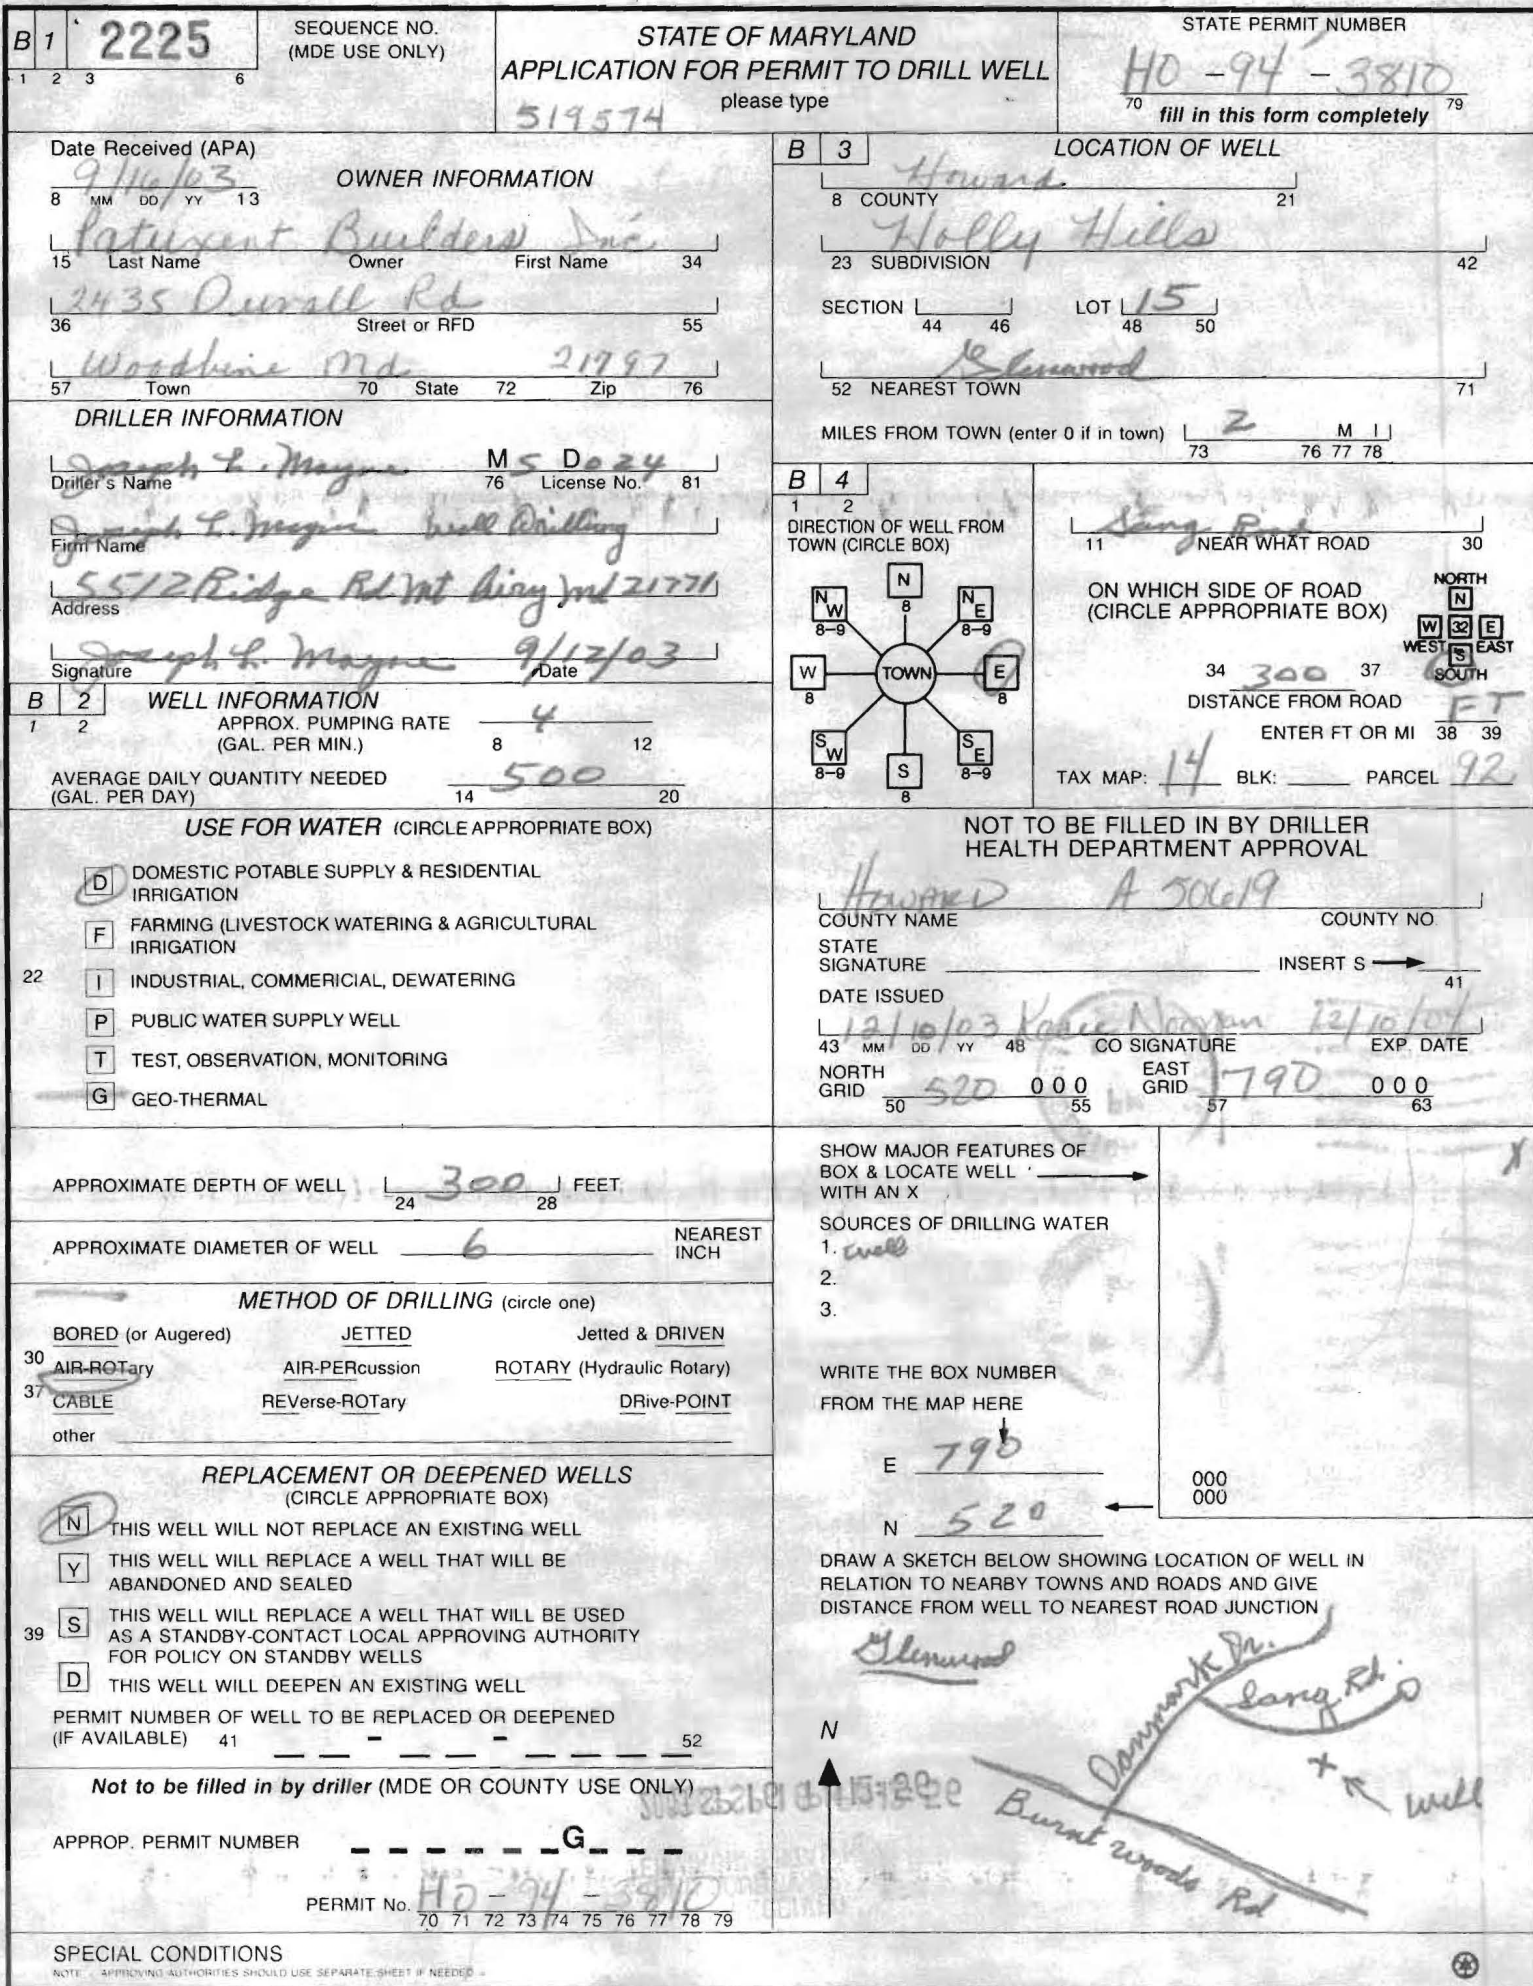 B 1 2225
1 2 3 6
SEQUENCE NO.
(MDE USE ONLY)
STATE OF MARYLAND
APPLICATION FOR PERMIT TO DRILL WELL
please type
519574
STATE PERMIT NUMBER
HO - 94 - 3810
70 79
fill in this form completely
Date Received (APA)
9/16/03
8 MM DD YY 13
OWNER INFORMATION
Patuxent Builders Inc
15 Last Name Owner First Name 34
2435 Duvall Rd
36 Street or RFD 55
Woodbine Md 21797
57 Town 70 State 72 Zip 76
DRILLER INFORMATION
Joseph L. Mayne M S D 024
Driller's Name 76 License No. 81
Joseph L. Mayne Well Drilling
Firm Name
5512 Ridge Rd Mt Airy Md 21771
Address
Joseph L. Mayne 9/12/03
Signature Date
B 2 WELL INFORMATION
1 2
APPROX. PUMPING RATE 4
(GAL. PER MIN.) 8 12
AVERAGE DAILY QUANTITY NEEDED 500
(GAL. PER DAY) 14 20
USE FOR WATER (CIRCLE APPROPRIATE BOX)
D DOMESTIC POTABLE SUPPLY & RESIDENTIAL
IRRIGATION
F FARMING (LIVESTOCK WATERING & AGRICULTURAL
IRRIGATION
22 I INDUSTRIAL, COMMERICIAL, DEWATERING
P PUBLIC WATER SUPPLY WELL
T TEST, OBSERVATION, MONITORING
G GEO-THERMAL
APPROXIMATE DEPTH OF WELL 300 FEET
24 28
APPROXIMATE DIAMETER OF WELL 6 NEAREST
INCH
METHOD OF DRILLING (circle one)
BORED (or Augered) JETTED Jetted & DRIVEN
30 AIR-ROTary AIR-PERcussion ROTARY (Hydraulic Rotary)
37 CABLE REVerse-ROTary DRive-POINT
other
REPLACEMENT OR DEEPENED WELLS
(CIRCLE APPROPRIATE BOX)
N THIS WELL WILL NOT REPLACE AN EXISTING WELL
Y THIS WELL WILL REPLACE A WELL THAT WILL BE
ABANDONED AND SEALED
39 S THIS WELL WILL REPLACE A WELL THAT WILL BE USED
AS A STANDBY-CONTACT LOCAL APPROVING AUTHORITY
FOR POLICY ON STANDBY WELLS
D THIS WELL WILL DEEPEN AN EXISTING WELL
PERMIT NUMBER OF WELL TO BE REPLACED OR DEEPENED
(IF AVAILABLE) 41 - - 52
Not to be filled in by driller (MDE OR COUNTY USE ONLY)
APPROP. PERMIT NUMBER G
PERMIT No. HO - 94 - 3810
70 71 72 73 74 75 76 77 78 79
SPECIAL CONDITIONS
NOTE - APPROVING AUTHORITIES SHOULD USE SEPARATE SHEET IF NEEDED -
B 3 LOCATION OF WELL
Howard
8 COUNTY 21
Holly Hills
23 SUBDIVISION 42
SECTION LOT 15
44 46 48 50
Glenwood
52 NEAREST TOWN 71
MILES FROM TOWN (enter 0 if in town) 2 M I
73 76 77 78
B 4
1 2
DIRECTION OF WELL FROM
TOWN (CIRCLE BOX)
N
8
NW
8-9
NE
8-9
W
8
TOWN
E
8
SW
8-9
S
8
SE
8-9
Sang Road
11 NEAR WHAT ROAD 30
ON WHICH SIDE OF ROAD
(CIRCLE APPROPRIATE BOX)
NORTH
N
W 32 E
WEST EAST
S
SOUTH
34 300 37
DISTANCE FROM ROAD
ENTER FT OR MI FT
38 39
TAX MAP: 14 BLK: PARCEL 92
NOT TO BE FILLED IN BY DRILLER
HEALTH DEPARTMENT APPROVAL
HOWARD A 50619
COUNTY NAME COUNTY NO.
STATE
SIGNATURE INSERT S
41
DATE ISSUED
12/10/03 12/10/04
43 MM DD YY 48 CO SIGNATURE EXP. DATE
NORTH
GRID 520 000
50 55
EAST
GRID 790 000
57 63
SHOW MAJOR FEATURES OF
BOX & LOCATE WELL
WITH AN X
X
SOURCES OF DRILLING WATER
1. well
2.
3.
WRITE THE BOX NUMBER
FROM THE MAP HERE
E 790
N 520
000
000
DRAW A SKETCH BELOW SHOWING LOCATION OF WELL IN
RELATION TO NEARBY TOWNS AND ROADS AND GIVE
DISTANCE FROM WELL TO NEAREST ROAD JUNCTION
Glenwood
Danmark Dr.
Sang Rd.
N
X
well
Burnt Woods Rd